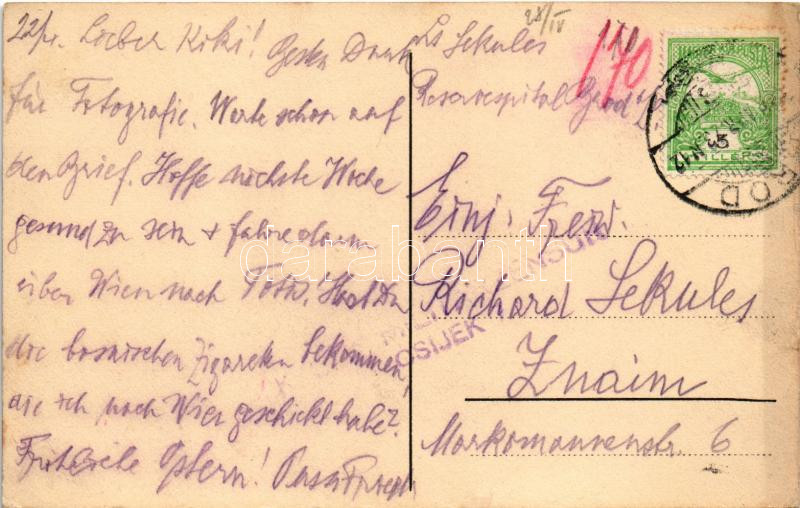 28/IV
22/IV. Lieber Kiki! Besten Dank
für Fotografie. Warte schon auf
den Brief. Hoffe nächste Woche
gesund zu sein + fahre dann
über Wien nach Hast Du
die bosnischen Zigaretten bekommen,
die ich nach Wien geschickt habe?
Fröhliche Ostern!
Sekules
Reservespital Brod
170
Einj. Freiw.
Richard Sekules
Znaim
Markomannenstr. 6
FILLÉR
BROD
ZENSUR
OSIJEK
darabanth